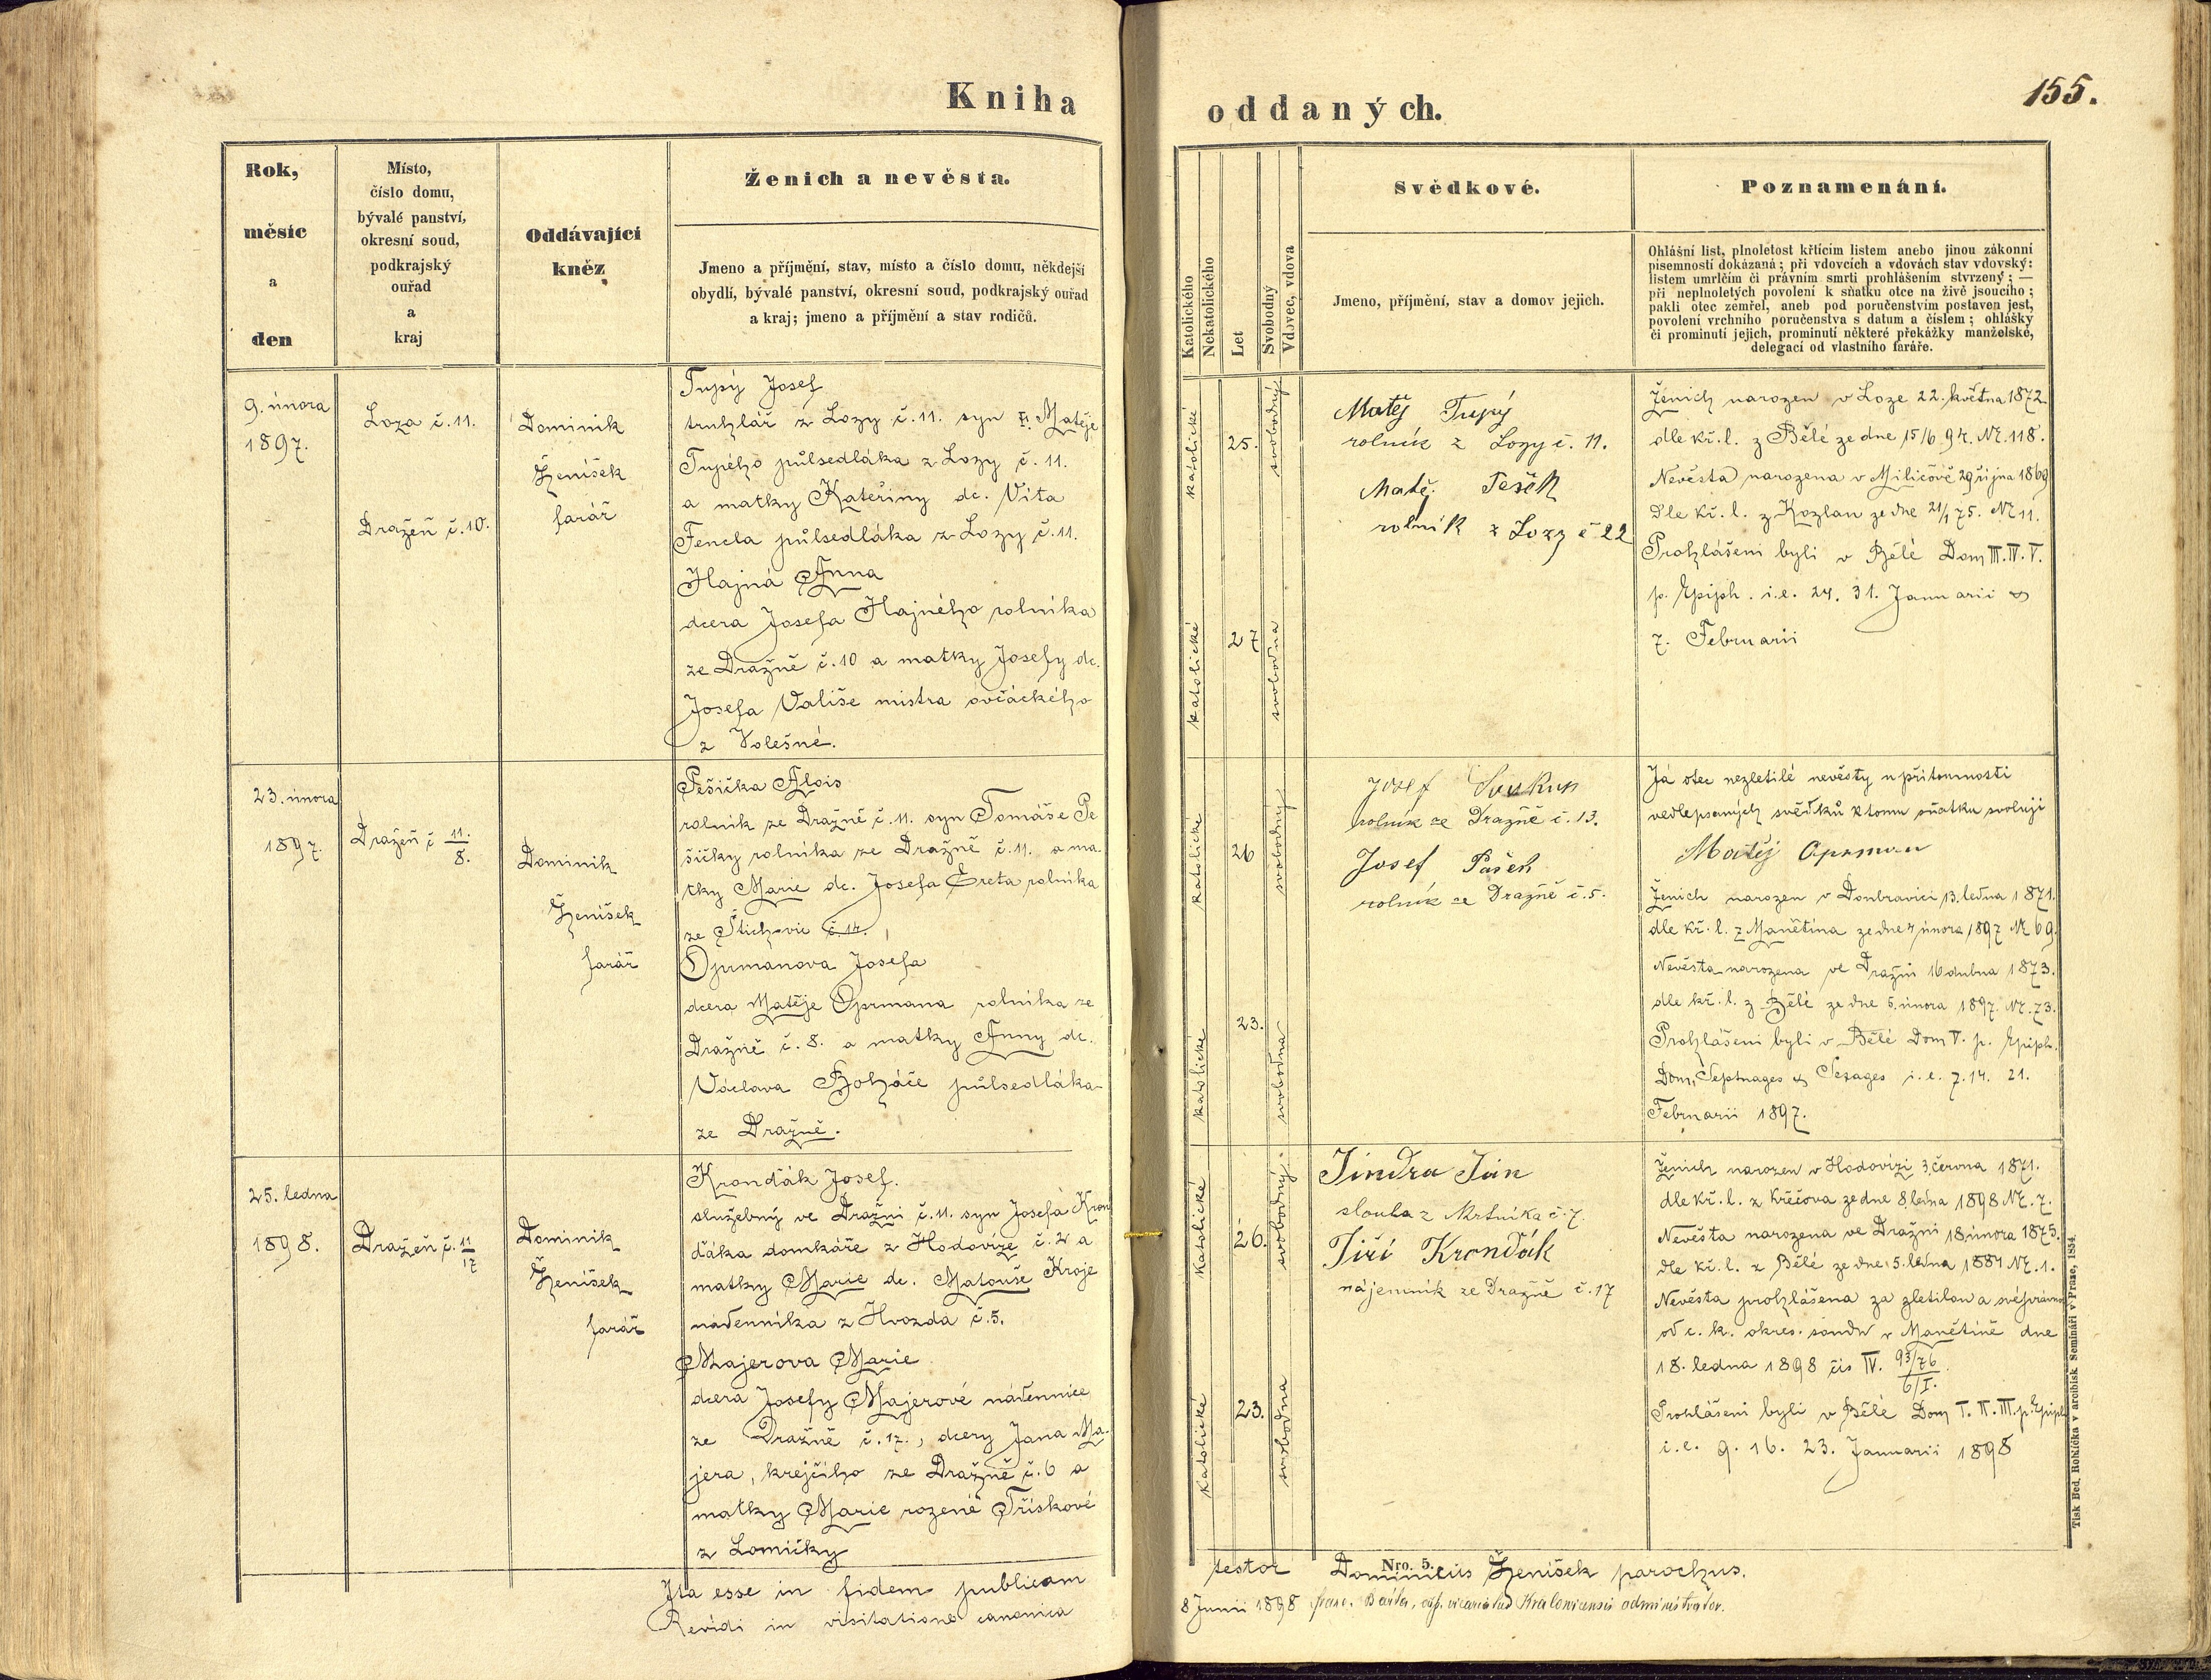 Kniha
oddaných.
155.
Rok,
měsíc
a
den
Místo,
číslo domu,
bývalé panství,
okresní soud,
podkrajský
ouřad
a
kraj
Oddávající
kněz
Ženich a nevěsta.
Jmeno a příjmění, stav, místo a číslo domu, někdejší
obydlí, bývalé panství, okresní soud, podkrajský ouřad
a kraj; jmeno a příjmění a stav rodičů.
Katolického
Nekatolického
Let
Svobodný
Vdovec, vdova
Svědkové.
Jmeno, příjmění, stav a domov jejich.
Poznamenání.
Ohlášní list, plnoletost křtícím listem anebo jinou zákonní
písemností dokázaná; při vdovcích a vdovách stav vdovský:
listem umrlčím či právním smrti prohlášením stvrzený; —
při neplnoletých povolení k sňatku otce na živě jsoucího;
pakli otec zemřel, aneb pod poručenstvím postaven jest,
povolení vrchního poručenstva s datum a číslem; ohlášky
či prominutí jejich, prominutí některé překážky manželské,
delegací od vlastního faráře.
9. února
1897.
Loza č. 11.
Dražeň č. 10.
Dominik
Ženíšek
farář
Tupý Josef
truhlář z Lozy č. 11. syn Matěje
Tupého půlsedláka z Lozy č. 11.
a matky Kateřiny dc. Víta
Fencla půlsedláka z Lozy č. 11.
Hajná Anna
dcera Josefa Hajného rolníka
ze Dražně č. 10 a matky Josefy dc.
Josefa Vališe mistra ovčáckého
z Volešné.
katolické
25.
svobodný
katolické
27
svobodna
Matěj Tupý
rolník z Lozy č. 11.
Matěj Pešek
rolník z Lozy č 22
Ženich narozen v Loze 22. května 1872
dle kř. l. z Bělé ze dne 15/6 94. Nr. 118.
Nevěsta narozena v Miličově 29 října 1869
dle kř. l. z Kozlan ze dne 21/1 75. Nr 11.
Prohlášeni byli v Bělé Dom III. IV. V.
p. Epiph. i.e. 24. 31. Januarii &
7. Februarii
23. února
1897.
Dražeň č 11./8.
Dominik
Ženíšek
farář
Pešička Alois
rolník ze Dražně č. 11. syn Tomáše Pe
šičky rolníka ze Dražně č. 11. a ma-
tky Marie dc. Josefa Ereta rolníka
ze Štichovic č. 14.
Oprmanova Josefa
dcera Matěje Oprmana rolníka ze
Dražně č. 8. a matky Anny dc.
Václava Boháče půlsedláka
ze Dražně.
katolické
26
svobodný
katolické
23.
svobodna
Josef
rolník ze Dražně č. 13.
Josef Pašek
rolník ze Dražně č. 5.
Já otec nezletilé nevěsty u přítomnosti
vedlepsaných svědků k tomu sňatku svoluji
Matěj Oprman
Ženich narozen v Doubravici 13. ledna 1871.
dle kř. l. z Manětína ze dne 4 února 1897 Nr 69.
Nevěsta narozena ve Dražni 16 dubna 1873.
dle kř. l. z Bělé ze dne 5. února 1897. Nr. 73.
Prohlášeni byli v Bělé Dom V. p. Epiph.
Dom. Septuages & Sexages i.e. 7. 14. 21.
Februarii 1897.
25. ledna
1898.
Dražeň č. 11/17
Dominik
Ženíšek
farář
Kronďák Josef.
služebný ve Dražni č. 11. syn Josefa Kron
ďáka domkáře z Hodovíze č. 2 a
matky Marie dc. Matouše Kroje
nádenníka z Hvozda č. 5.
Majerova Marie
dcera Josefy Majerové nádennice
ze Dražně č. 17., dcery Jana Ma-
jera, krejčího ze Dražně č. 6 a
matky Marie rozené Třískové
z Lomičky
katolické
26.
svobodný
katolické
23.
svobodna
Jindra Jan
slouha z Mrtníka č. 7.
Jiří Kronďák
nájemník ze Dražně č. 17
Ženich narozen v Hodovízi 3. června 1871.
dle kř. l. z Krčova ze dne 8. ledna 1898 Nr. 7.
Nevěsta narozena ve Dražni 18. února 1875.
dle kř. l. z Bělé ze dne 5. ledna 1884 Nr. 1.
Nevěsta prohlášena za zletilou a svéprávnou
od c. k. okres. soudu v Manětíně dne
18. ledna 1898 čís IV. 93/76
6/I.
Prohlášeni byli v Bělé Dom I. II. III. p. Epiph
i.e. 9. 16. 23. Januarii 1898
Ita esse in fidem publicam
testor Dominicus Ženíšek parochus.
Nro. 5.
Revidi in visitatione canonica
8 Junii 1898 vicariatus Kralovicensis administrator.
Tisk Bed. Rohlíčka v arcibisk Semináři v Praze, 1854